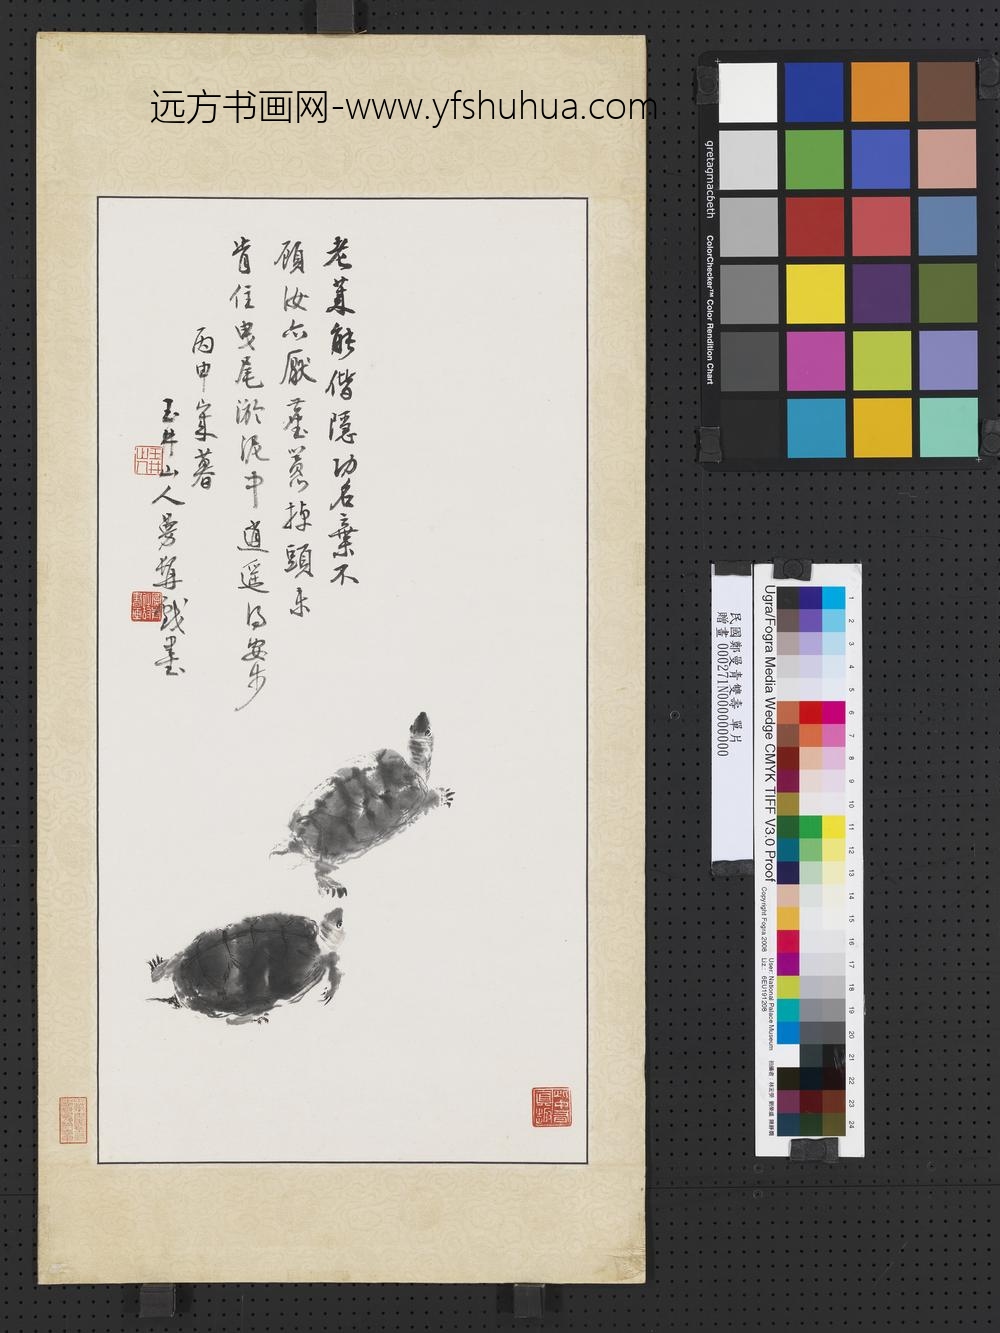 远方书画网-www.yfshuhua.com
老萊能偕隱功名棄不
顧汝亦厭
掉頭
肯住曳尾淤泥中逍遥得安步
丙申歲暮
玉井山人曼青戲墨
gretagmacbeth
ColorChecker™ Color Rendition Chart
民國鄭曼青雙壽 單片
贈畫 000271N000000000
Ugra/Fogra Media Wedge CMYK TIFF V3.0 Proof
Copyright Fogra 2008
User: National Palace Museum
Liz.: 6EU191208
1
2
3
4
5
6
7
8
9
10
11
12
13
14
15
16
17
18
19
20
21
22
23
24